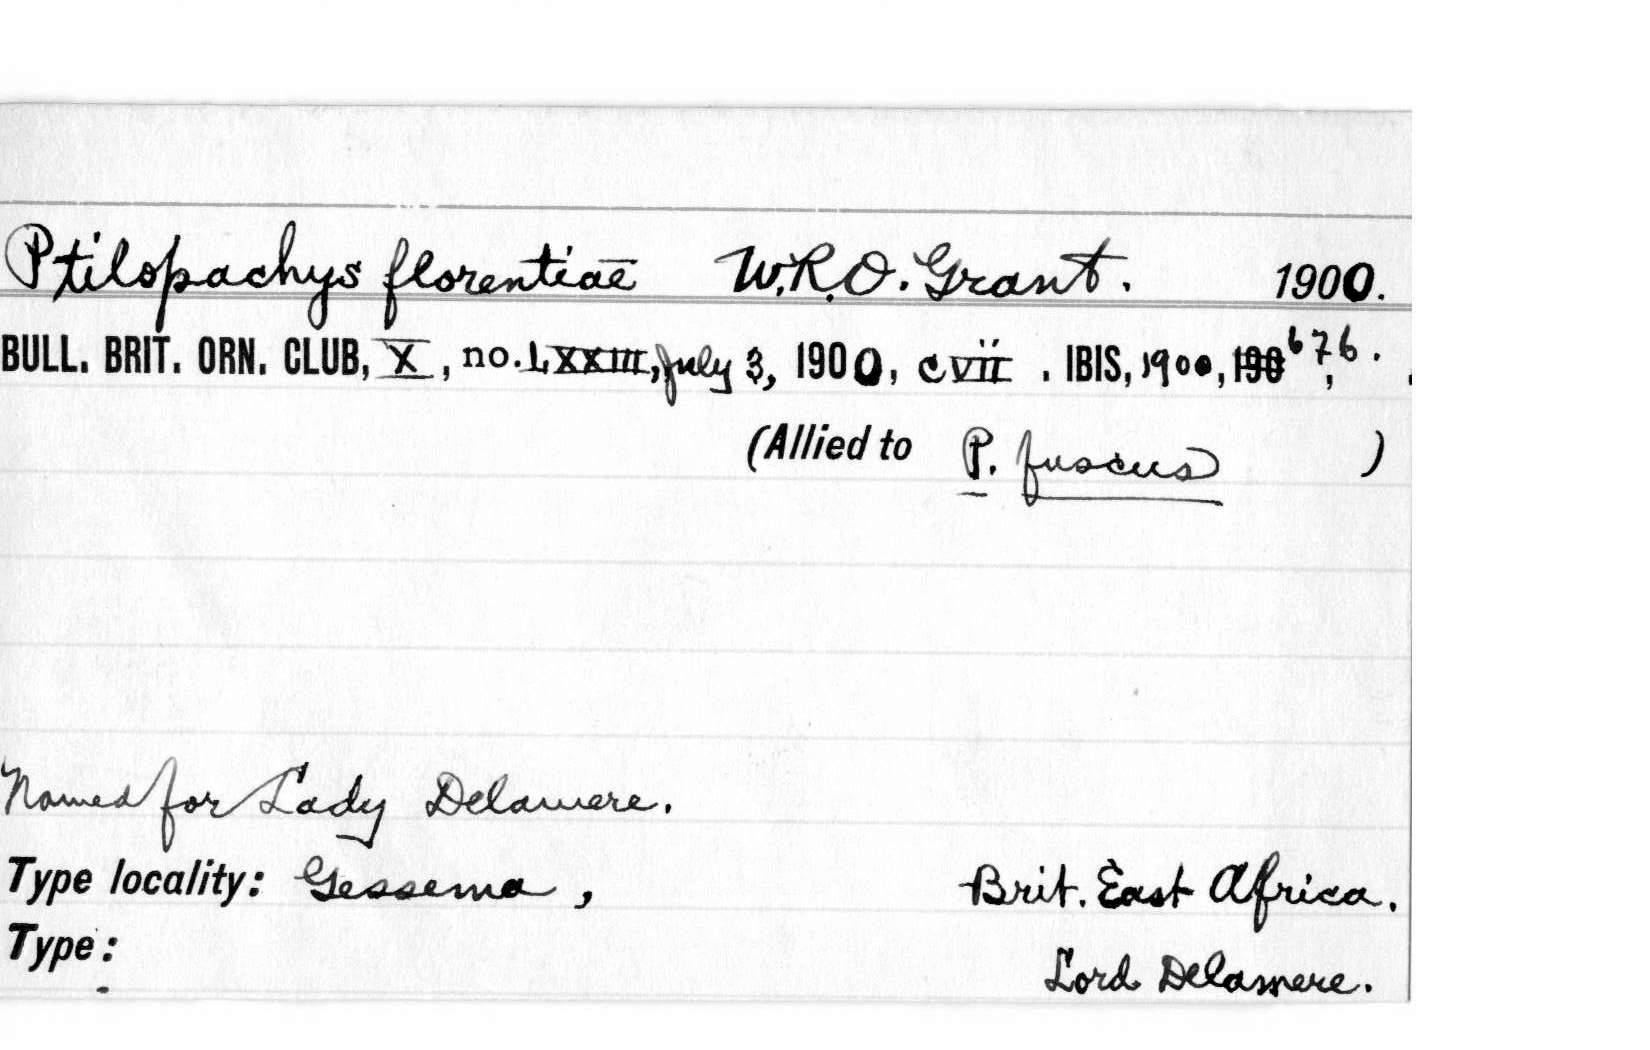 Ptilopachys florentiae W.R.O. Grant. 1900.
BULL. BRIT. ORN. CLUB, X, no. LXXIII, July 3, 1900, cvii. IBIS, 1900, 676.
(Allied to P. fuscus )
Named for Lady Delamere.
Type locality: Gessema, Brit. East Africa.
Type:
Lord Delamere.